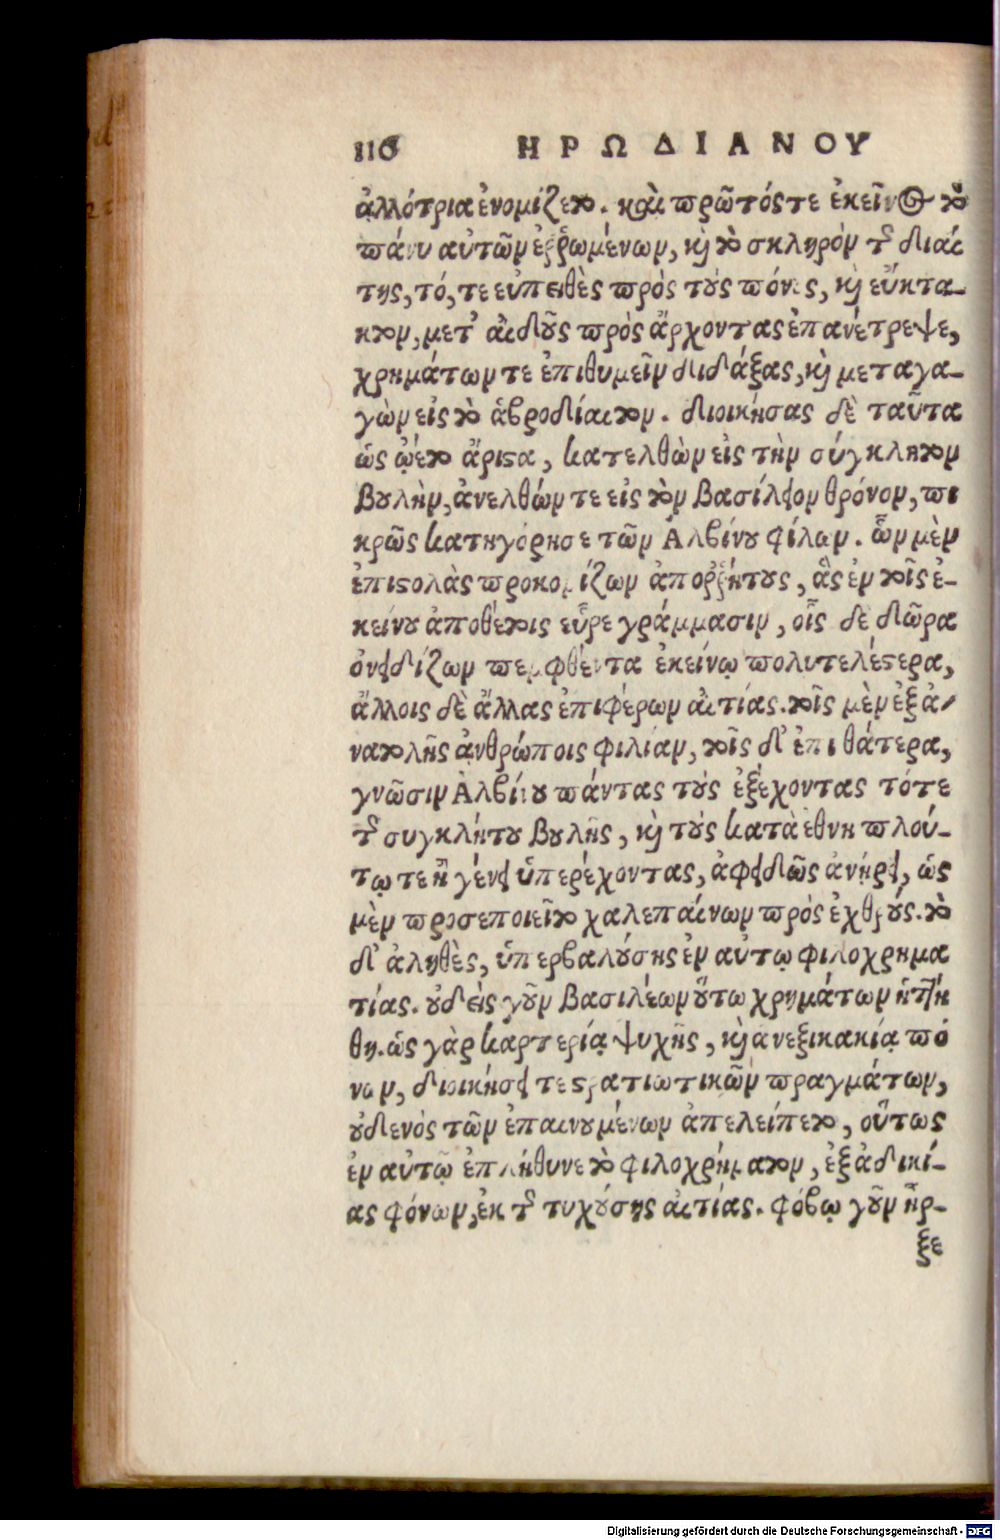 116 ΗΡΩΔΙΑΝΟΥ
ἀλλότρια ἐνομίζετο. καὶ πρῶτός τε ἐκεῖνος τὸ
πάνυ αὐτῶν ἐῤῥωμένων, κὶ τὸ σκληρὸν τῆς διαί
της, τό, τε εὐπειθὲς πρὸς τοὺς πόνους, κὶ εὔκτα-
κτον, μετ' αἰδοῦς πρὸς ἄρχοντας ἐπανέτρεψε,
χρημάτων τε ἐπιθυμεῖν διδάξας, κὶ μεταγα-
γὼν εἰς τὸ ἁβροδίαιτον. διοικήσας δὲ ταῦτα
ὡς ᾤετο ἄριστα, κατελθὼν εἰς τὴν σύγκλητον
βουλὴν, ἀνελθών τε εἰς τὸν βασίλειον θρόνον, πι
κρῶς κατηγόρησε τῶν Ἀλβίνου φίλων. ὧν μὲν
ἐπιστολὰς προκομίζων ἀποῤῥήτους, ἃς ἐν τοῖς ἐ-
κείνου ἀποθέτοις εὗρε γράμμασιν, οἷς δὲ δῶρα
ὀνειδίζων πεμφθέντα ἐκείνῳ πολυτελέστερα,
ἄλλοις δὲ ἄλλας ἐπιφέρων αἰτίας. τοῖς μὲν ἐξ ἀ-
νατολῆς ἀνθρώποις φιλίαν, τοῖς δ' ἐπι θάτερα,
γνῶσιν Ἀλβίνου πάντας τοὺς ἐξέχοντας τότε
τῆς συγκλήτου βουλῆς, κὶ τοὺς κατὰ ἔθνη πλού-
τῳ τε ἢ γένει ὑπερέχοντας, ἀφειδῶς ἀνῄρει, ὡς
μὲν προσεποιεῖτο χαλεπαίνων πρὸς ἐχθρούς. τὸ
δ' ἀληθὲς, ὑπερβαλούσης ἐν αὐτῳ φιλοχρημα
τίας. οὐδεὶς γοῦν βασιλέων οὕτω χρημάτων ἡττή
θη. ὡς γὰρ καρτερίᾳ ψυχῆς, κὶ ἀνεξικακίᾳ πό
νων, διοικήσει τε στρατιωτικῶν πραγμάτων,
οὐδενὸς τῶν ἐπαινουμένων ἀπελείπετο, οὕτως
ἐν αὐτῷ ἐπλήθυνε τὸ φιλοχρήματον, ἐξ ἀδικί-
ας φόνων, ἐκ τῆς τυχούσης αἰτίας. φόβῳ γοῦν ἦρ-
ξε
Digitalisierung gefördert durch die Deutsche Forschungsgemeinschaft - DFG